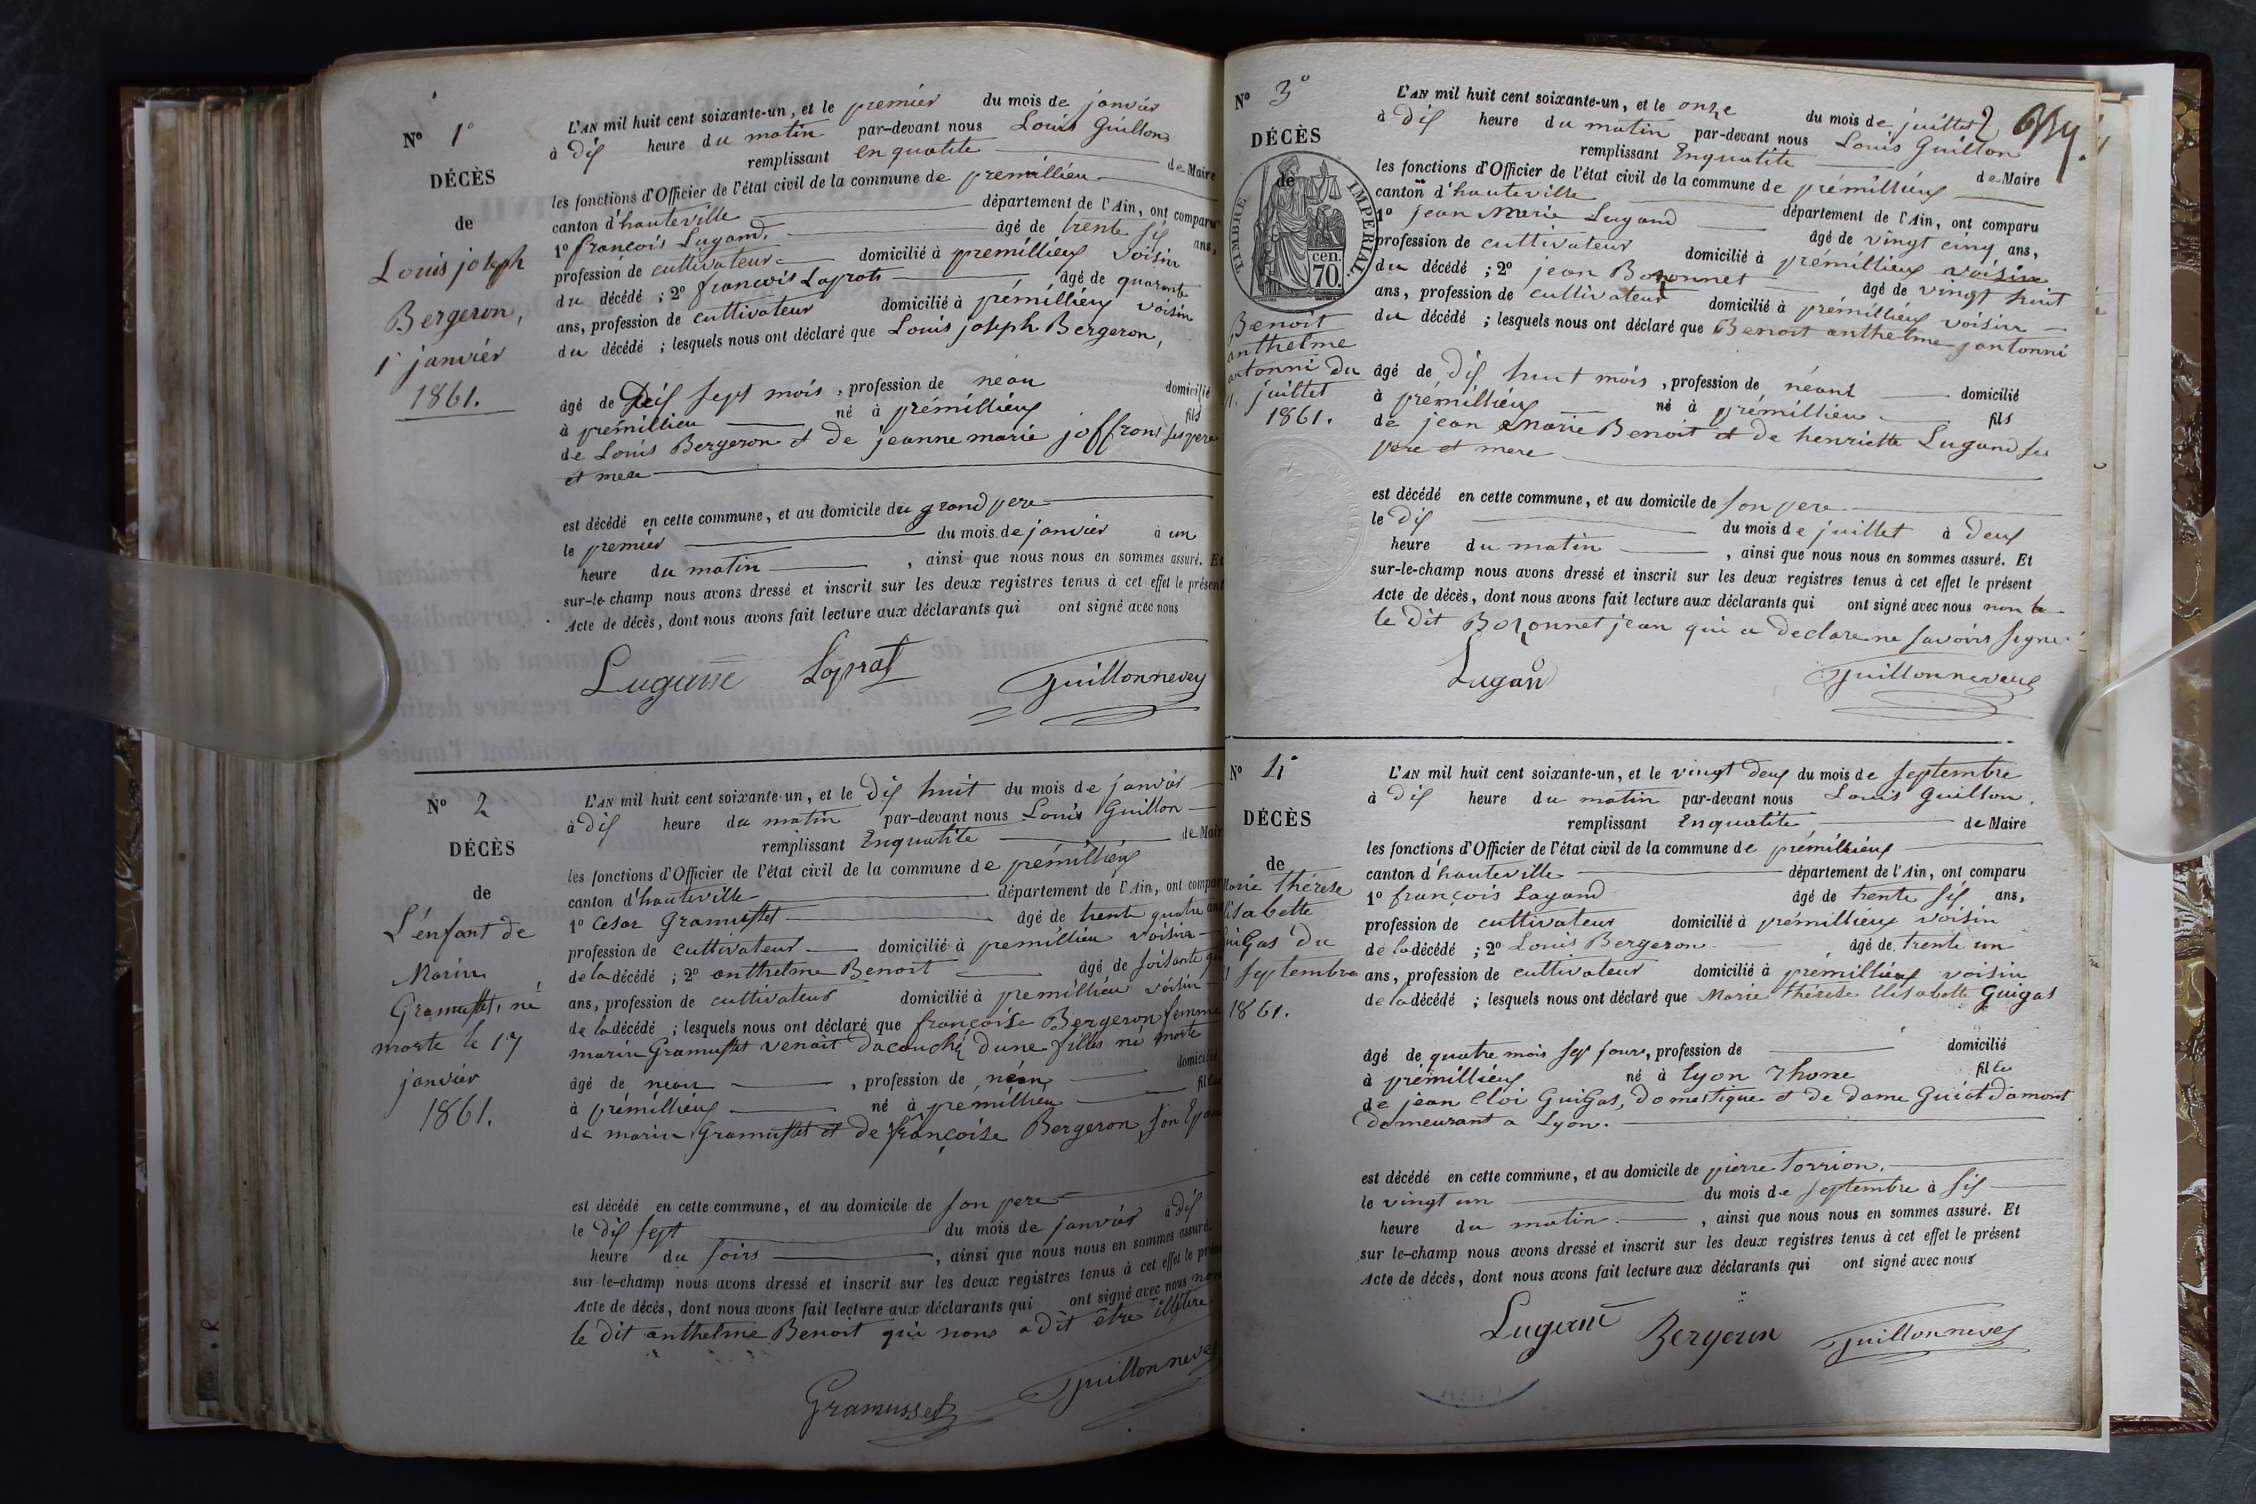 N° 1°
DÉCÈS
de
Louis joseph
Bergeron,
1 janvier
1861.
L'AN mil huit cent soixante-un, et le premier du mois de janvier
à dix heure du matin par-devant nous Louis Guillon
remplissant en qualité de Maire
les fonctions d'Officier de l'état civil de la commune de premillieu
canton d'hauteville département de l'Ain, ont comparu
1° françois Lugand, âgé de trente six ans,
profession de cultivateur domicilié à premillieux voisin
du décédé ; 2° françois Laprat âgé de quarante
ans, profession de cultivateur domicilié à prémillieux voisin
du décédé ; lesquels nous ont déclaré que Louis joseph Bergeron,
âgé de Dix sept mois, profession de néan domicilié
à prémillieu né à prémillieux fils
de Louis Bergeron et de jeanne marie joffron ses pere
et mere
est décédé en cette commune, et au domicile du grand pere
le premier du mois de janvier à un
heure du matin, ainsi que nous nous en sommes assuré. Et
sur-le-champ nous avons dressé et inscrit sur les deux registres tenus à cet effet le présent
Acte de décès, dont nous avons fait lecture aux déclarants qui ont signé avec nous
Lugand Laprat Guillonnevey
N° 2
DÉCÈS
de
L'enfant de
Marin
Gramusset, né
morte le 17
janvier
1861.
L'AN mil huit cent soixante-un, et le dix huit du mois de janvier
à dix heure du matin par-devant nous Louis Guillon
remplissant Enqualité de Maire
les fonctions d'Officier de l'état civil de la commune de prémillieux
canton d'hauteville département de l'Ain, ont comparu
1° Cesar Gramusset âgé de trente quatre ans
profession de cultivateur domicilié à premillieu voisin
de la décédé ; 2° anthelme Benoit âgé de soisante
ans, profession de cultivateur domicilié à premillieu voisin
de la décédé ; lesquels nous ont déclaré que françoise Bergeron femme
marin Gramusset venait dacouché dune filles né morte
âgé de néan, profession de néan domicilié
à prémillieux né à premillieu fille
de marin Gramusset et de françoise Bergeron son Epouse
est décédé en cette commune, et au domicile de son pere
le dix sept du mois de janvier à dix
heure du soirs, ainsi que nous nous en sommes assuré.
sur-le-champ nous avons dressé et inscrit sur les deux registres tenus à cet effet le présent
Acte de décès, dont nous avons fait lecture aux déclarants qui ont signé avec nous non
le dit anthelme Benoit qui nous a dit être illitere
Gramusset Guillonnevey
N° 3°
DÉCÈS
de
TIMBRE IMPÉRIAL
cen. 70.
Benoit
anthelme
antonni du
11. juillet
1861.
L'AN mil huit cent soixante-un, et le onze du mois de juillet 2
à dix heure du matin par-devant nous Louis Guillon
remplissant Enqualité de Maire
les fonctions d'Officier de l'état civil de la commune de prémillieux
canton d'hauteville département de l'Ain, ont comparu
1° jean Marie Lugand âgé de vingt cinq ans,
profession de cultivateur domicilié à prémillieux voisin
du décédé ; 2° jean Bozonnet âgé de vingt huit
ans, profession de cultivateur domicilié à prémillieux voisin
du décédé ; lesquels nous ont déclaré que Benoit anthelme jantonni
âgé de dix huit mois, profession de néant domicilié
à prémillieux né à prémillieu fils
de jean Marie Benoit et de henriette Lugand ses
père et mere
est décédé en cette commune, et au domicile de son pere
le dix du mois de juillet à deux
heure du matin, ainsi que nous nous en sommes assuré. Et
sur-le-champ nous avons dressé et inscrit sur les deux registres tenus à cet effet le présent
Acte de décès, dont nous avons fait lecture aux déclarants qui ont signé avec nous non
le dit Bozonnet jean qui a declare ne savoirs signe
Lugand Guillonnevey
N° 4
DÉCÈS
de
Marie thérèse
Elisabette
Guigas du
21 septembre
1861.
L'AN mil huit cent soixante-un, et le vingt deux du mois de septembre
à dix heure du matin par-devant nous Louis Guillon.
remplissant Enqualité de Maire
les fonctions d'Officier de l'état civil de la commune de prémillieux
canton d'hauteville département de l'Ain, ont comparu
1° françois Lugand âgé de trente six ans,
profession de cultivateur domicilié à prémillieux voisin
de la décédé ; 2° Louis Bergeron âgé de trente un
ans, profession de cultivateur domicilié à prémillieux voisin
de la décédé ; lesquels nous ont déclaré que Marie thérèse Elisabette Guigas
âgé de quatre mois sept jours, profession de domicilié
à prémillieux né à lyon Rhone fille
de jean Eloi Guigas, domestique et de dame Guiot Damont
demeurant a Lyon.
est décédé en cette commune, et au domicile de pierre torrion.
le vingt un du mois de septembre à six
heure du matin, ainsi que nous nous en sommes assuré. Et
sur le-champ nous avons dressé et inscrit sur les deux registres tenus à cet effet le présent
Acte de décès, dont nous avons fait lecture aux déclarants qui ont signé avec nous
Lugand Bergeron Guillonnevey